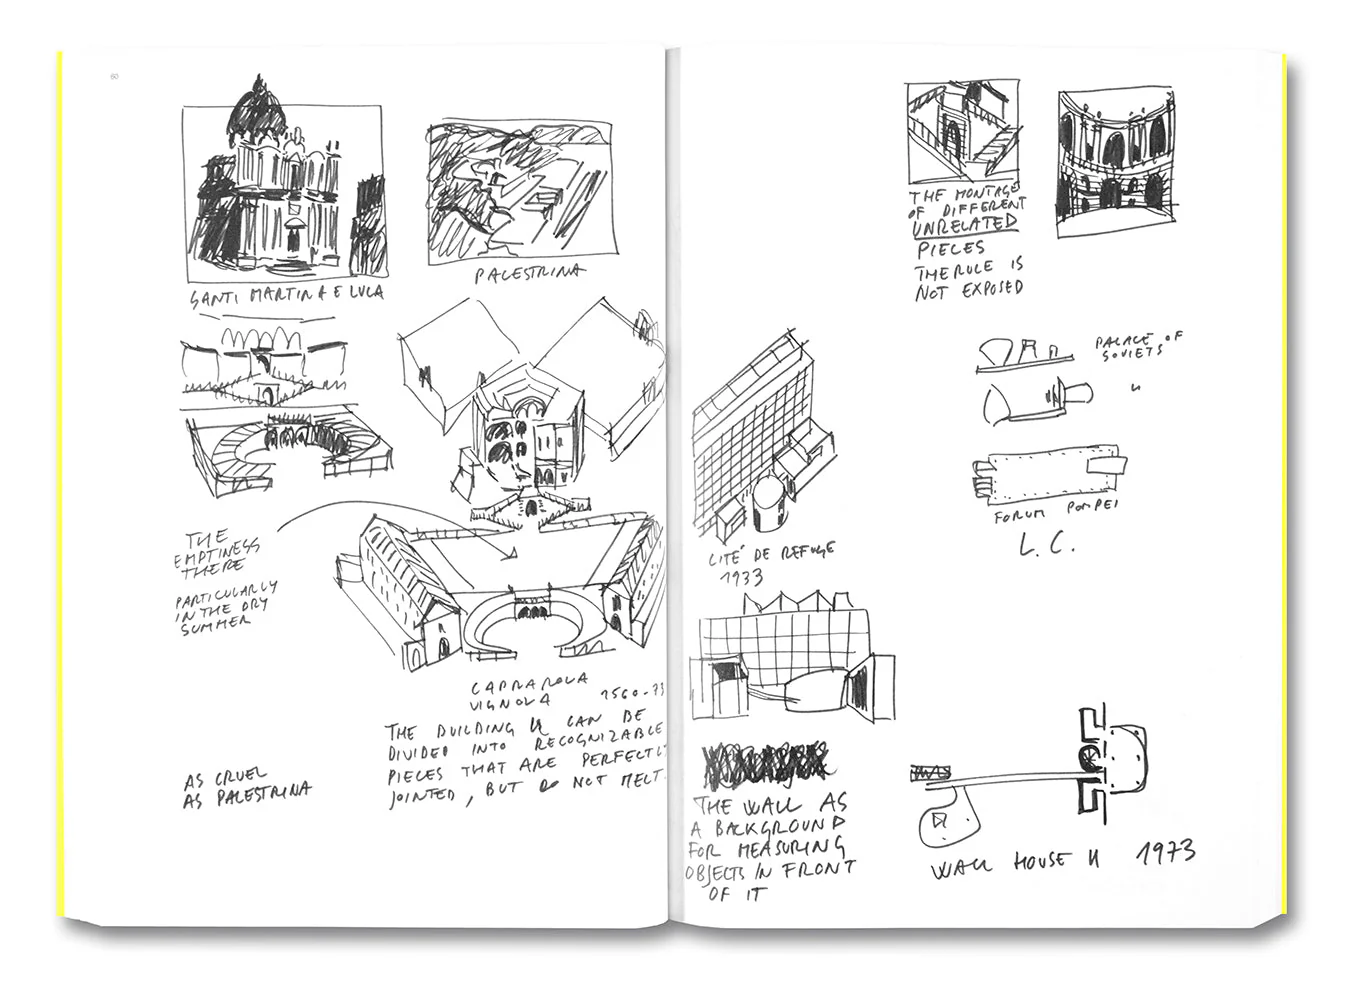 60
SANTI MARTINA E LUCA
PALESTRINA
THE
EMPTINESS
THERE
PARTICULARLY
IN THE DRY
SUMMER
CAPRAROLA
VIGNOLA 1560-73
THE BUILDING CAN BE
DIVIDED INTO RECOGNIZABLE
PIECES THAT ARE PERFECTLY
JOINTED, BUT DO NOT MELT.
AS CRUEL
AS PALESTRINA
THE MONTAGE
OF DIFFERENT
UNRELATED
PIECES
THE RULE IS
NOT EXPOSED
PALACE OF
SOVIETS
"
FORUM POMPEI
L.C.
CITÉ DE REFUGE
1933
THE WALL AS
A BACKGROUND
FOR MEASURING
OBJECTS IN FRONT
OF IT
WALL HOUSE II 1973